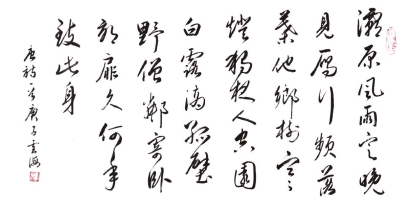 灞原風雨定晚
見雁行頻落
葉他鄉樹寒
燈獨夜人空園
白露滴孤壁
野僧鄰寄卧
郊扉久何年
致此身
唐詩一首庚子雲海